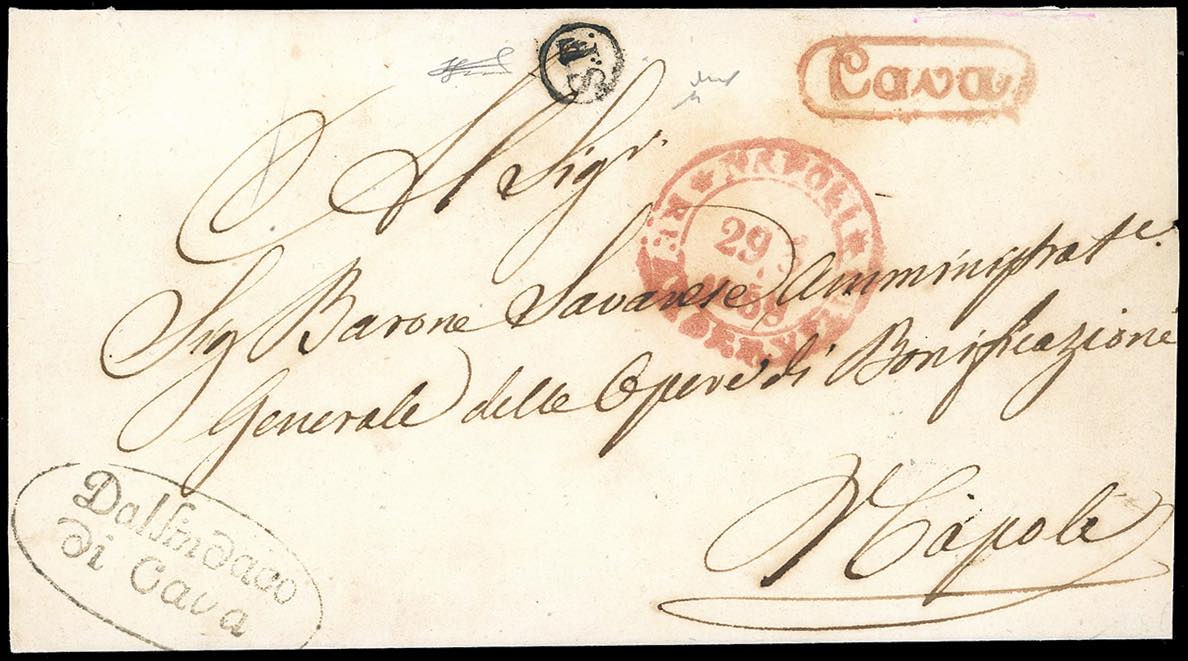 S.F.
Cava
Al Sigr.
NAPOLI
29
Sig Barone Savarese Amministrate.
Generale delle Opere di Bonificazione
Napoli
Dal Sindaco
di Cava